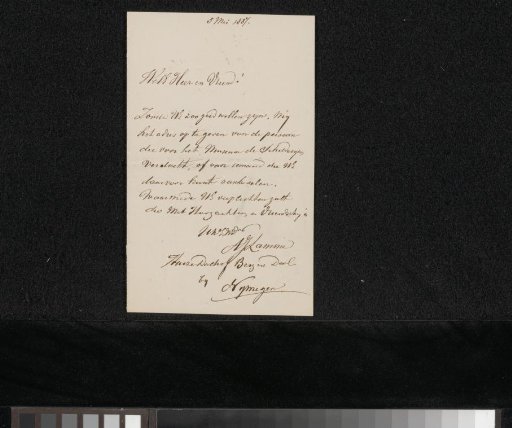 5 Mei 1887.
Heer en Vriend!
Zoudt U zoo goed willen zijn, mij
het adres op te geven van de persoon
die voor het Museum de Schilderijen
, of voor iemand die U
daarvoor kunt aanbevelen.
Waarmede U verplichten zult
die Met Hoogachting en Vriendschap is
AJ Lamme
Huize Dukenhof Berg en Daal
bij Nijmegen